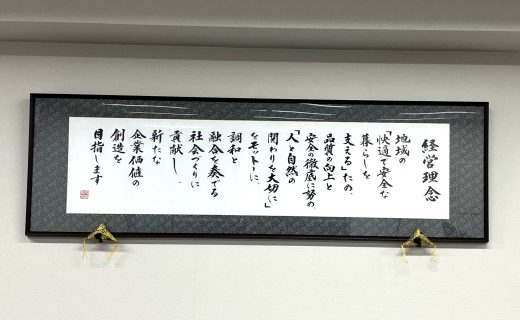 経営理念
地域の
「快適で安全な
暮らしを
支える」ため、
品質の向上と
安全の徹底に努め
「人と自然の
関わりを大切に」
をモットーに、
調和と
融合を奏でる
社会づくりに
貢献し、
新たな
企業価値の
創造を
目指します